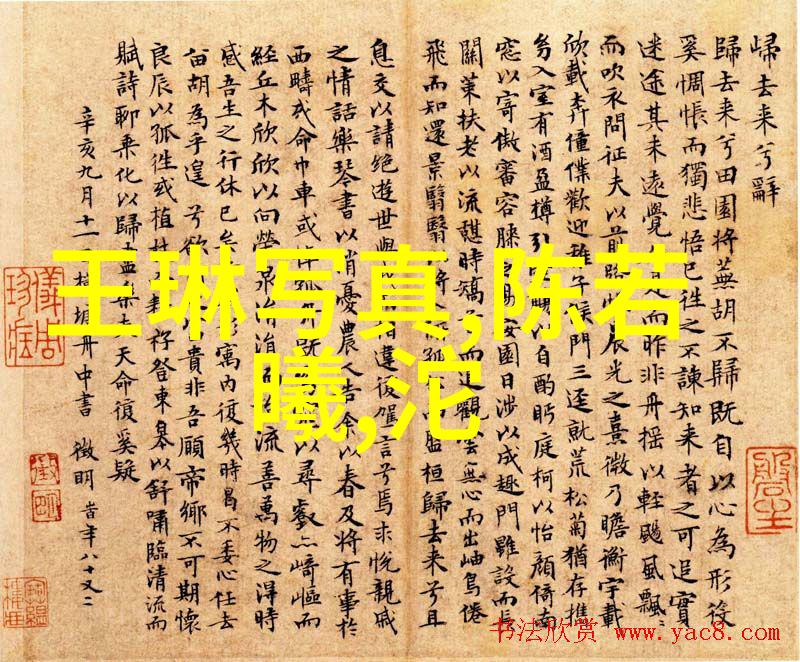 歸去来兮辭
歸去来兮田園将蕪胡不歸既自以心為形役
奚惆悵而獨悲悟已往之不諫知来者之可追實
迷途其未遠覺是而昨非舟摇以輕颺風飄〻
而吹衣問征夫以前路晨光之熹微乃瞻衡宇載
欣載奔僮僕歡迎稚子候門三逕就荒松菊猶存携
幼入室有酒盈樽引以自酌眄庭柯以怡顏倚南
窓以寄傲審容膝易安園日涉以成趣門雖設而長
關策扶老以流憩時矯而遐觀雲無心而出岫鳥倦
飛而知還景翳翳将入孤而盤桓歸去来兮且
息交以請絶遊世與相違復駕言兮焉求悅親戚
之情話樂琴書以消憂農人告余以春及将有事於
西疇或命巾車或棹孤舟既以尋壑亦崎嶇而
經丘木欣欣以向榮泉涓涓流善萬物之得時
感吾生之行休已矣寓内復幾時曷不委心任去
留胡為乎遑兮欲貴非吾願帝鄉不可期懷
良辰以孤往或植杖耘耔登東皋以舒嘯臨清流而
賦詩聊乘化以歸盡樂夫天命復奚疑
辛亥九月十一塘舟中書 徵明 時年八十又二
王琳写真,陈若
曦,沱
书法欣赏 www.yac8.com